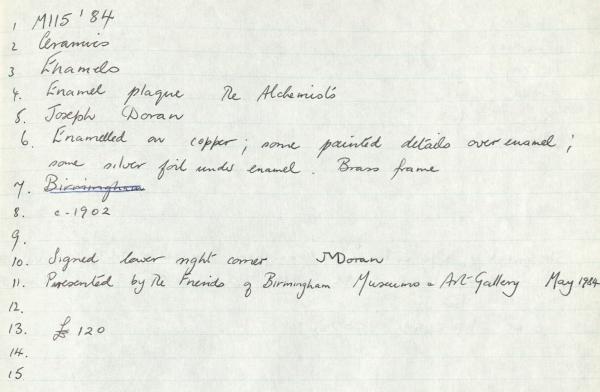 1 M115 '84
2 Ceramics
3 Enamels
4. Enamel plaque The Alchemists
5. Joseph Doran
6. Enamelled on copper ; some painted details over enamel ;
some silver foil under enamel . Brass frame
7. Birmingham
8. c-1902
9.
10. Signed lower right corner JMDoran
11. Presented by the Friends of Birmingham Museums & Art Gallery May 1984
12.
13. £ 120
14.
15